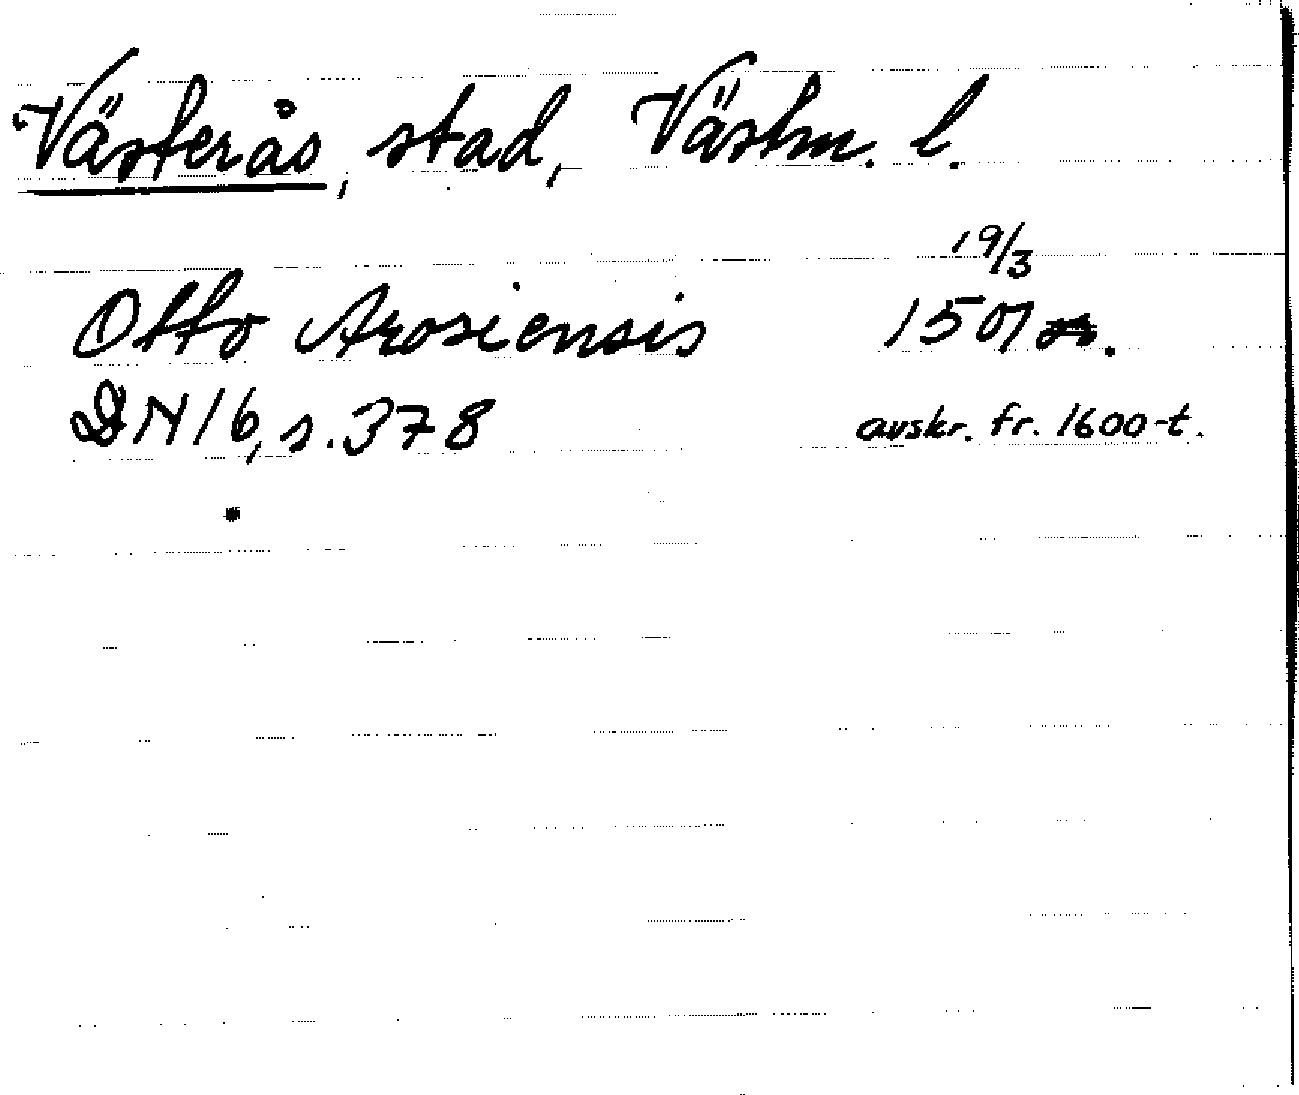 Västerås, stad, Västm. l.
19/3
Otto Arosiensis 1501
DN 16, s. 378 avskr. fr. 1600-t.